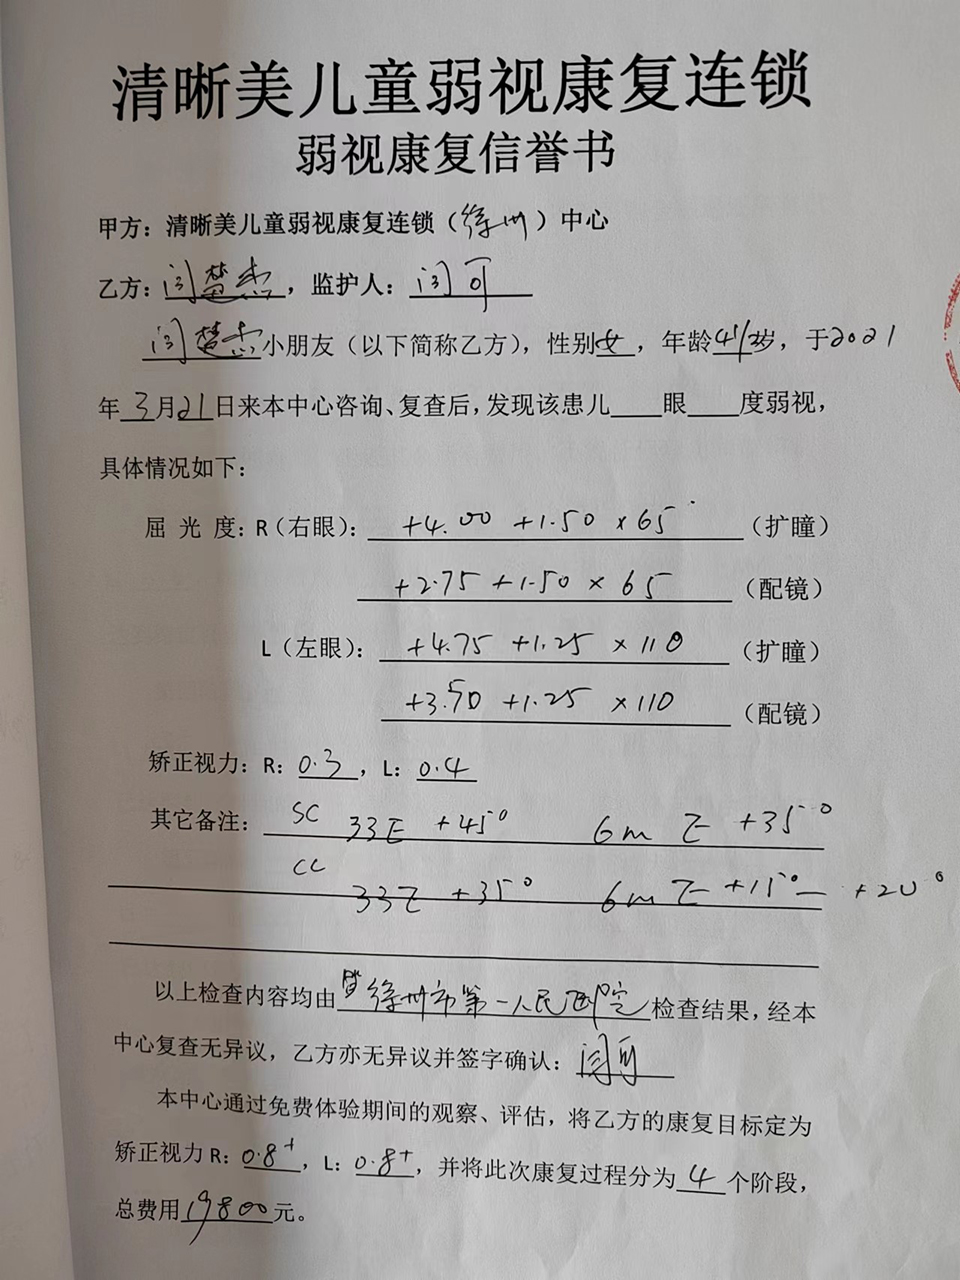 清晰美儿童弱视康复连锁
弱视康复信誉书
甲方：清晰美儿童弱视康复连锁（徐州）中心
乙方：闫楚杰，监护人：闫可
闫楚杰小朋友（以下简称乙方），性别女，年龄4岁，于2021
年3月21日来本中心咨询、复查后，发现该患儿____眼____度弱视，
具体情况如下：
屈 光 度：R（右眼）：+4.00 +1.50 ×65（扩瞳）
+2.75 +1.50 × 65（配镜）
L（左眼）：+4.75 +1.25 ×110（扩瞳）
+3.50 +1.25 ×110（配镜）
矫正视力：R：0.3，L：0.4
其它备注：SC 33E +45° 6m Z +35°
CC 33Z +35° 6m Z +15°— +20°
以上检查内容均由徐州市第一人民医院检查结果，经本
中心复查无异议，乙方亦无异议并签字确认：闫可
本中心通过免费体验期间的观察、评估，将乙方的康复目标定为
矫正视力 R：0.8+，L：0.8+，并将此次康复过程分为4个阶段，
总费用19800元。